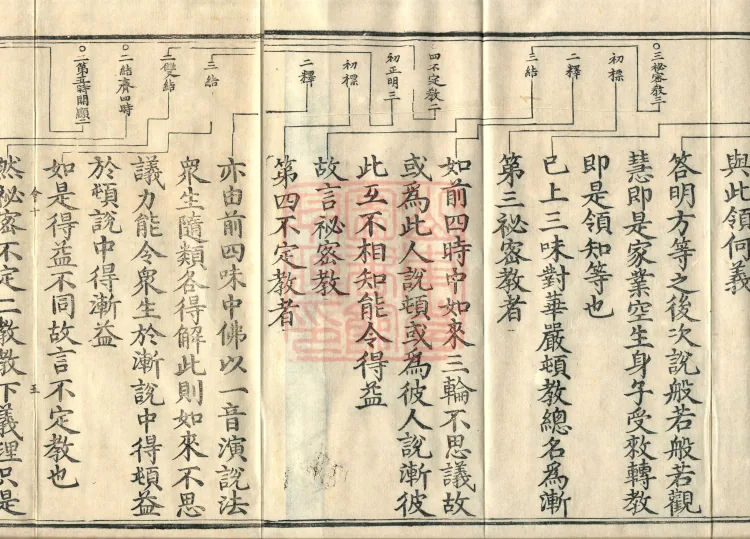 ○三祕密教三
初標
二釋
三結
四不定教二
初正明三
初標
二釋
三結
二雙結
○二結齊四時
○二第五時開顯二
與此領何義
答明方等之後次說般若般若觀
慧即是家業空生身子受敕轉教
即是領知等也
已上三味對華嚴頓教總名為漸
第三祕密教者
如前四時中如來三輪不思議故
或為此人說頓或為彼人說漸彼
此互不相知能令得益
故言祕密教
第四不定教者
亦由前四味中佛以一音演說法
眾生隨類各得解此則如來不思
議力能令眾生於漸說中得頓益
於頓說中得漸益
如是得益不同故言不定教也
五
然祕密不定二教教下義理只是